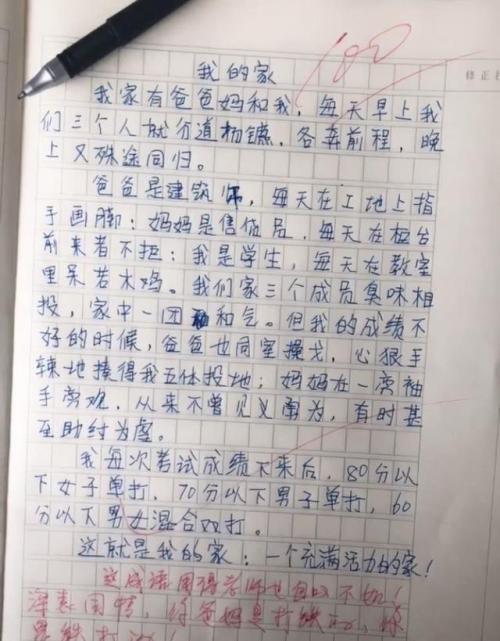 100
修正
我的家
我家有爸爸妈和我，每天早上我
们三个人就分道杨镳，各奔前程，晚
上又殊途同归。
爸爸是建筑师，每天在工地上指
手画脚；妈妈是售货员，每天在柜台
前来者不拒；我是学生，每天在教室
里呆若木鸡。我们家三个成员臭味相
投，家中一团和气。但我的成绩不
好的时候，爸爸也同室操戈，心狠手
辣地揍得我五体投地；妈妈在一旁袖
手旁观，从来不曾见义勇为，有时甚
至助纣为虐。
我每次考试成绩下来后，80分以
下女子单打，70分以下男子单打，60
分以下男女混合双打。
这就是我的家：一个充满活力的家！
这成语用得老师也自叹不如！
深表同情，你爸妈是打铁